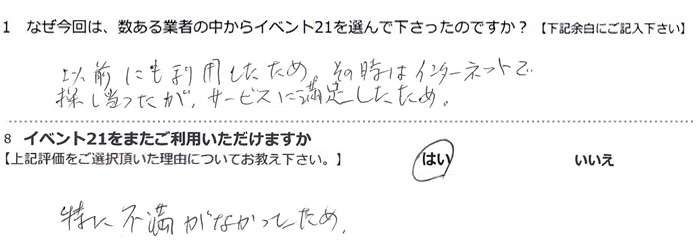 1 なぜ今回は、数ある業者の中からイベント21を選んで下さったのですか？【下記余白にご記入下さい】
以前にも利用したため。その時はインターネットで
探し当ったが、サービスに満足したため。
8 イベント21をまたご利用いただけますか
【上記評価をご選択頂いた理由についてお教え下さい。】 はい いいえ
特に不満がなかったため。